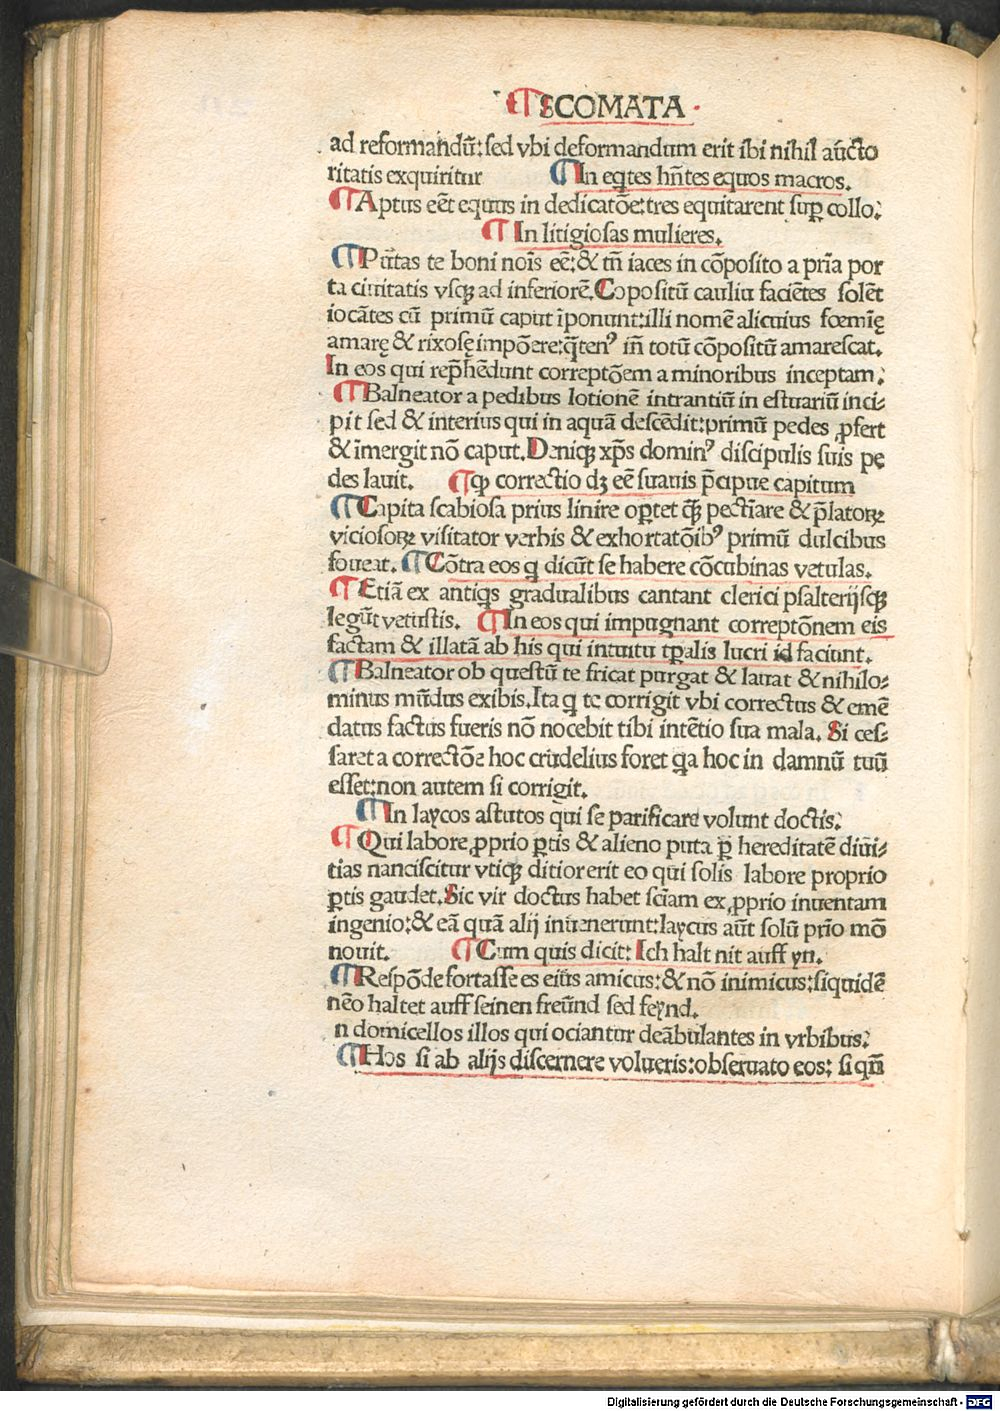 ¶SCOMATA ·
ad reformandū:sed vbi deformandum erit ibi nihil aūcto
ritatis exquiritur ¶In eq̄tes hn̄tes equos macros.
¶Aptus eēt equus in dedicatōe:tres equitarent suꝑ collo:
¶In litigiosas mulieres.
¶Pūtas te boni noīs eē:& tn̄ iaces in cōposito a pría por
ta ciuitatis vsqꝫ ad inferiorē.Copositū cauliu faciētes solēt
iocātes cū primū caput īponunt:illi nomē alicuius fœmīę
amarę & rixosę impōere:q̄tenꝰ in̄ totū cōpositū amarescat.
In eos qui rep̄hēdunt correptōem a minoribus inceptam:
¶Balneator a pedibus lotionē intrantiū in estuariū inci-
pit sed & interius qui in aquā descēdit:primū pedes ꝓfert
& īmergit nō caput.Deniqꝫ xp̄s dominꝰ discipulis suis pe
des lauit. ¶ꝙ correctio dꝫ eē suauis p̄cipue capitum
¶Capita scabiosa prius linire oꝑtet q̄ꝫ pectīare & p̄latoꝝ
viciosoꝝ visitator verbis & exhortatōibꝰ primū dulcibus
foueat. ¶Cōtra eos q̄ dicūt se habere cōcubinas vetulas.
¶Etiā ex antiq̄s gradualibus cantant clerici psalterijsqꝫ
legūt vetustis. ¶In eos qui impugnant correptōnem eis
factam & illatā ab his qui intuitu tꝑalis lucri id faciunt.
¶Balneator ob questū te fricat purgat & lauat & nihilo-
minus mūdus exibis.Ita q̄ te corrigit vbi correctus & emē
datus factus fueris nō nocebit tibi intētio sua mala. Si ces-
saret a correctōe hoc crudelius foret q̄a hoc in damnū tuū
esset:non autem si corrigit.
¶In laycos astutos qui se parificare volunt doctis:
¶Qui labore ꝓprio ꝑtis & alieno puta ꝑ hereditatē diūi-
tias nanciscitur vtiqꝫ ditior erit eo qui solis labore proprio
ꝑtis gaudet.Sic vir doctus habet scīam ex ꝓprio inuentam
ingenio:& eā quā alij inuenerunt:laycus aūt solū prío mō
nouit. ¶Cum quis dicit: Ich halt nit auff yn.
¶Respōde fortasse es eiūs amicus:& nō inimicus:siquidē
nēo haltet auff seinen freūnd sed feynd.
n domicellos illos qui ociantur deābulantes in vrbibus:
¶Hos si ab alijs discernere volueris:obseruato eos: si qn̄
Digitalisierung gefördert durch die Deutsche Forschungsgemeinschaft - DFG